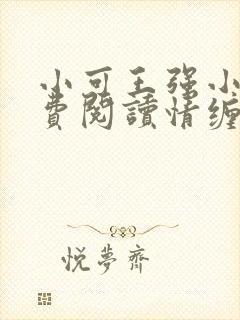 小可王强小
费阅读情缠
悦梦斋